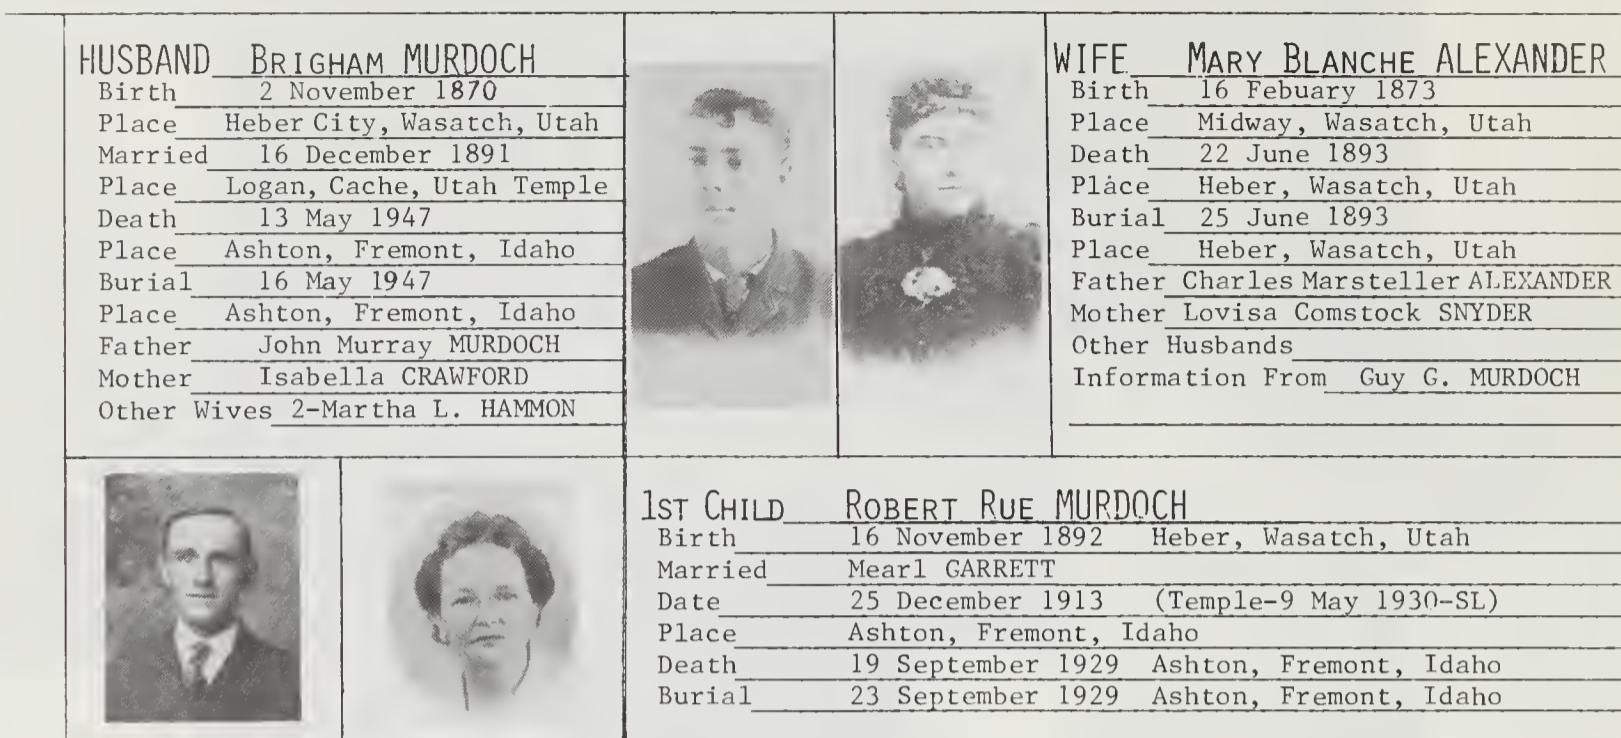 HUSBAND BRIGHAM MURDOCH
Birth 2 November 1870
Place Heber City, Wasatch, Utah
Married 16 December 1891
Place Logan, Cache, Utah Temple
Death 13 May 1947
Place Ashton, Fremont, Idaho
Burial 16 May 1947
Place Ashton, Fremont, Idaho
Father John Murray MURDOCH
Mother Isabella CRAWFORD
Other Wives 2-Martha L. HAMMON
WIFE MARY BLANCHE ALEXANDER
Birth 16 Febuary 1873
Place Midway, Wasatch, Utah
Death 22 June 1893
Place Heber, Wasatch, Utah
Burial 25 June 1893
Place Heber, Wasatch, Utah
Father Charles Marsteller ALEXANDER
Mother Lovisa Comstock SNYDER
Other Husbands
Information From Guy G. MURDOCH
1ST CHILD ROBERT RUE MURDOCH
Birth 16 November 1892 Heber, Wasatch, Utah
Married Mearl GARRETT
Date 25 December 1913 (Temple-9 May 1930-SL)
Place Ashton, Fremont, Idaho
Death 19 September 1929 Ashton, Fremont, Idaho
Burial 23 September 1929 Ashton, Fremont, Idaho